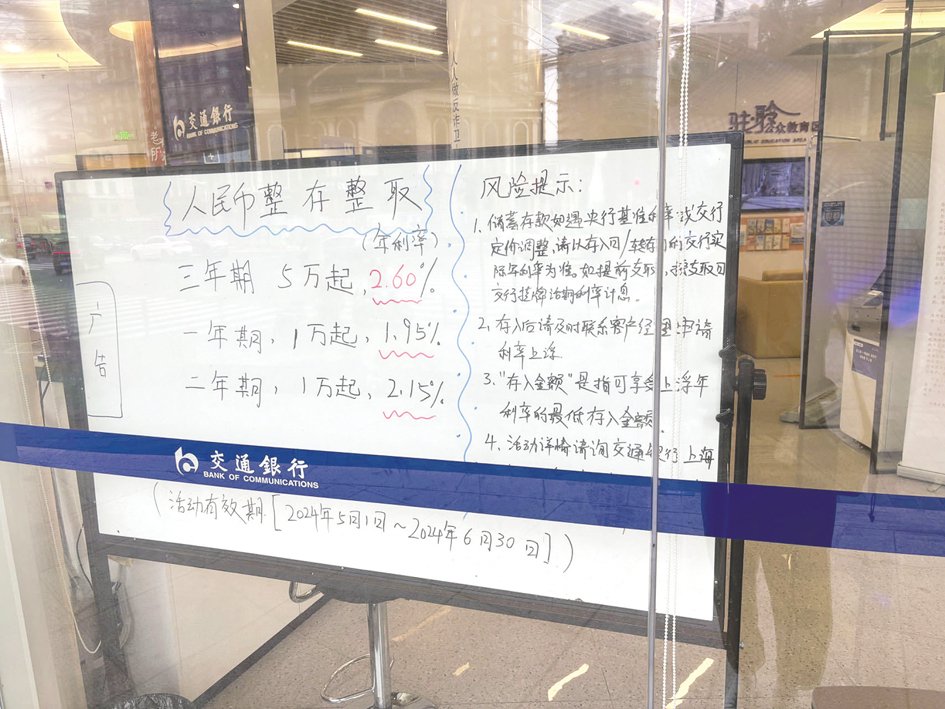 交通銀行
BANK OF COMMUNICATIONS
人人做反诈卫
公众教育区
PUBLIC EDUCATION AREA
广告
人民币整存整取
(年利率)
三年期 5万起, 2.60%
一年期, 1万起, 1.95%
二年期, 1万起, 2.15%
风险提示:
1. 储蓄存款如遇央行基准利率或交行
定价调整,请以存入日/转存日的交行实
际年利率为准。如提前支取,按支取日
交行挂牌活期利率计息.
2. 存入后请及时联系客户经理申请
利率上浮.
3. "存入金额"是指可享受上浮年
利率的最低存入金额.
4. 活动详情请询交通银行上海
交通銀行
BANK OF COMMUNICATIONS
(活动有效期[2024年5月1日~2024年6月30日])